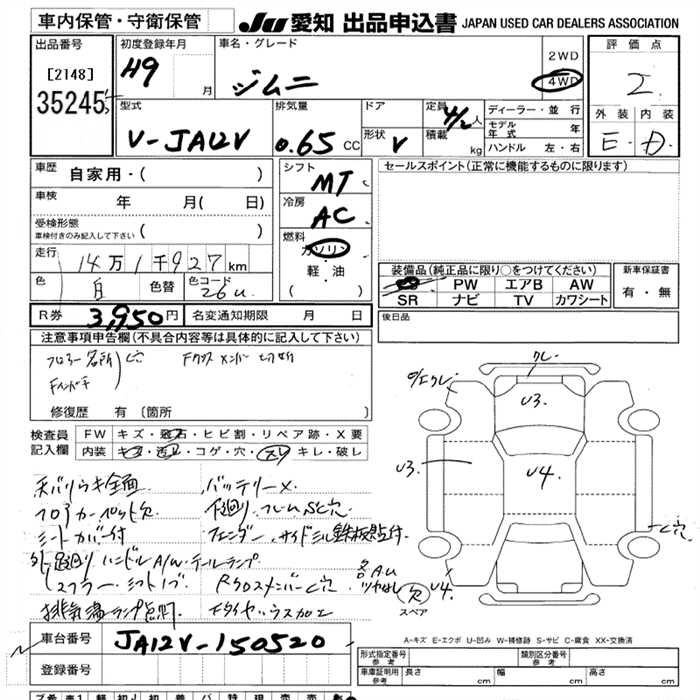 車内保管・守衛保管
JU 愛知 出品申込書 JAPAN USED CAR DEALERS ASSOCIATION
出品番号
[2148]
35245
初度登録年月
H9 月
車名・グレード
ジムニ
2WD
4WD
評価点
2
外装 内装
E D
型式
V-JA12V
排気量
0.65 CC
ドア
形状
V
定員
4/2人
積載
kg
ディーラー・並行
モデル年式 年
ハンドル 左・右
車歴
自家用・( )
車検
年 月( 日)
受検形態
車検付きのみ記入して下さい ( )
走行
14万1千927km
色
白
色替
色コード
26U
シフト
MT
冷房
AC
燃料
ガソリン
・
軽・油
( )
セールスポイント(正常に機能するものに限ります)
装備品(純正品に限り○をつけてください)
PW エアB AW
SR ナビ TV カワシート
新車保証書
有・無
R券 3,950円 名変通知期限 月 日
後日品
注意事項申告欄(不具合内容等は具体的に記入して下さい)
フロアー各所 穴 Fクロスメンバー切断
修復歴 有 〔箇所
検査員
記入欄
FW キズ・飛石・ヒビ割・リペア跡・X要
内装 キズ・汚れ・コゲ・穴・スリ・キレ・破レ
天バリウキ全面 バッテリー×
フロアカーペット欠 下廻り フレームSC穴
シートカバー付 フェンダー、サイドシル鉄板貼付
外品 ハンドル A/W テールランプ
マフラー・シフトノブ Rクロスメンバー穴
排気温ランプ点灯
クレ
U3
U3
U4
U4
C穴
各AU
欠
スペア
A-キズ E-エクボ U-凹み W-補修跡 S-サビ C-腐食 XX-交換済
車台番号 JA12V-150520
登録番号
形式指定番号
参考
類別区分番号
参考
車庫証明用
参考
長さ cm 幅 cm 高さ cm